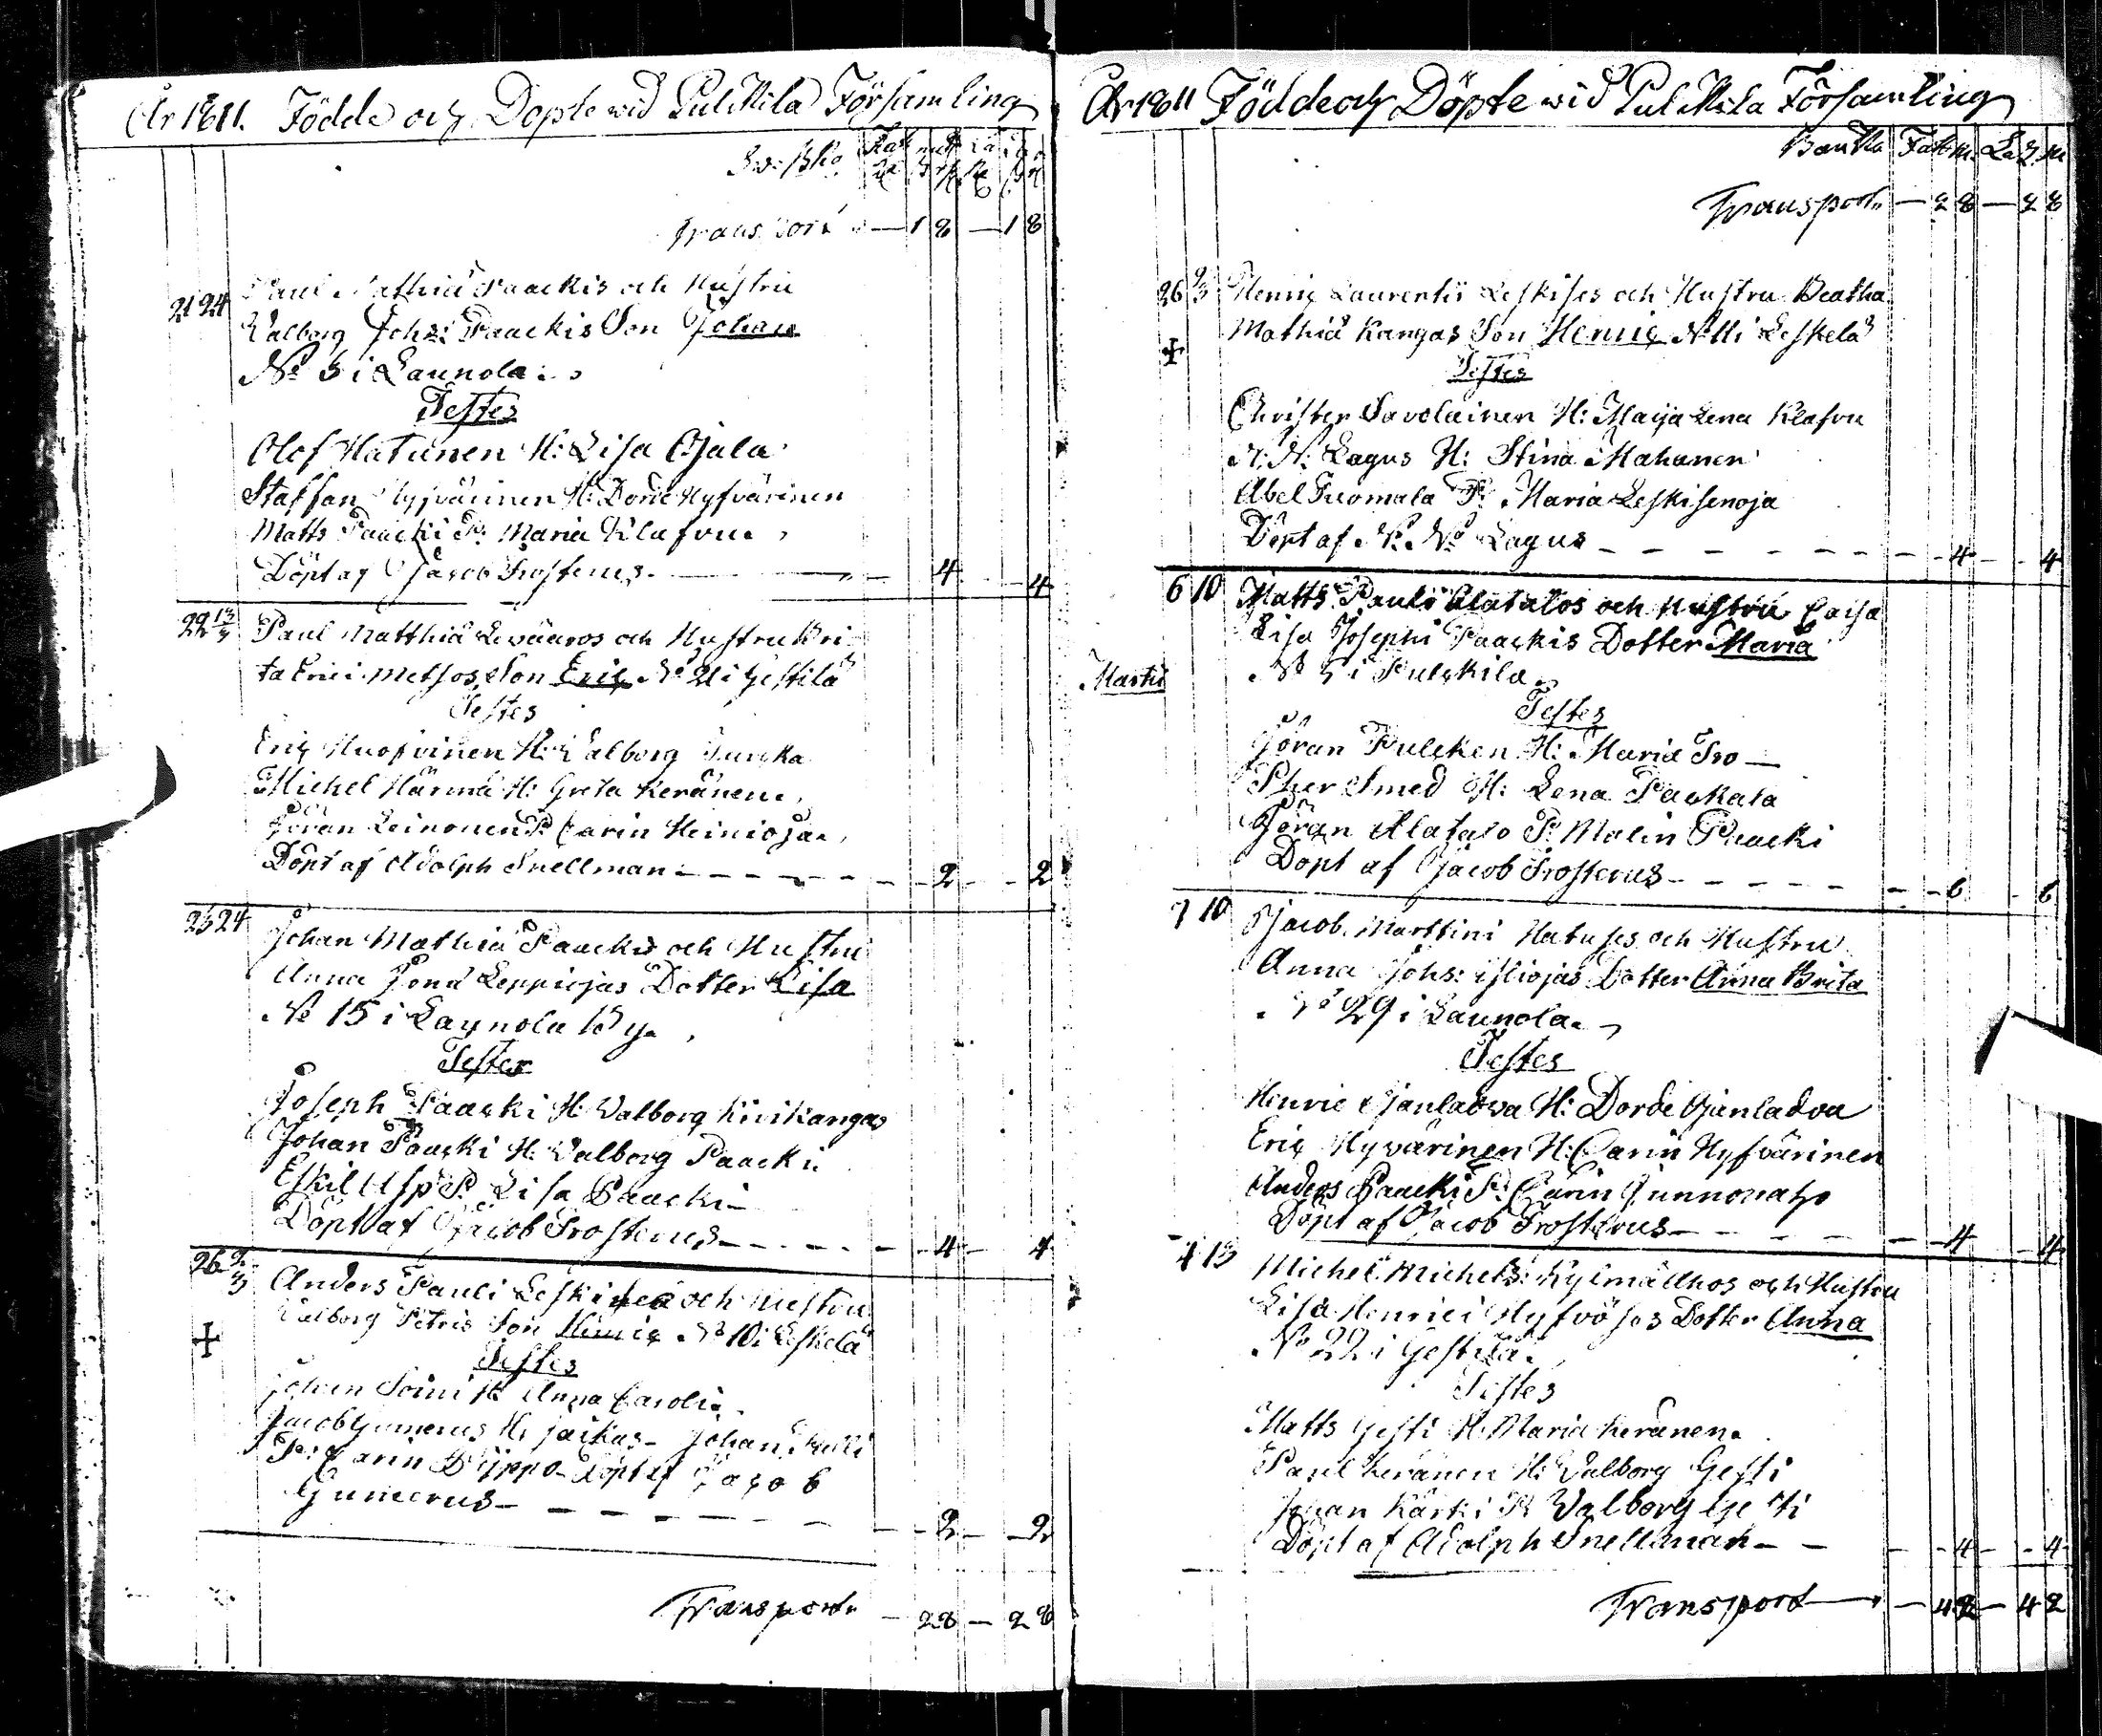 År 1811. Födde och Döpte wid Pulkkila Församling
Transport — 18 — 18
21 24 Paul Mathiæ Paackis och Hustru
Walborg Johs: Paackis Son Johan
No 5 i Launola.
Testes
Olof Hatunen H: Lisa Ojala
Staffan Hyfvärinen H: Dorde Hyfvärinen
Matts Paacki P: Maria Klafvu
Döpt af Jacob Frosterus. — 4 — 4
22 Paul Matthiæ och Hustru Bri
ta Erici Metsos Son Eric No 2 i Gestilä
Testes
Eric Huofvinen H: Walborg
Michel Härmä H: Greta Keränen.
Göran Leinonen P: Carin Heinioja
Döpt af Adolph Snellman - - - 2 - - 2
23 24 Johan Mathiæ Paackis och Hustru
Anna Jona Leppiojas Dotter Lisa
No 15 i Launola By.
Testes
Joseph Paacki H: Walborg Kivikangas
Johan Paacki H: Walborg Paacki
Eskil Asp P: Lisa Paacki
Döpt af Jacob Frosterus - - - 4 - 4
26 2/3 Anders Pauli och Hustru
Walborg Petris Son Henric No 10 i Leskelä
Testes
Johan Soini H: Anna Caroli
Jacob Gumerus H: Johan
P: Carin Döpt af Jacob
Gumerus - - - 2 - 2
Transport — 28 — 28
År 1811 Födde och Döpte wid Pulkkila Församling
Transport — 28 — 28
26 2/3 Henric Laurentii Leskises och Hustru Beatha
Mathiæ Kangas Son Henric Leskelä
Testes
Christer Savolainen H: Maija Lena Klafvu
N: N: Lagus H: Stina Mahanen
Abel Tuomala P: Maria Leskisenoja
Döpt af N: N: Lagus - - - 4 - - 4
6 10 Matts Pauli Alatalos och Hustru Caisa
Lisa Josephi Paackis Dotter Maria
Martii No 5 i Pulckila.
Testes
Göran Pulcken H: Maria Fro—
Pher Smed H: Lena Packala
Göran Alatalo P: Malin Paacki
Döpt af Jacob Frosterus - - - 6 - 6
7 10 Jacob Marttini Hatuses och Hustru
Anna Johs: Dotter Anna Brita
No 29 i Launola.
Testes
Henric Ojanladva H: Dorde Ojanladva
Eric Hyvärinen H: Carin Hyfvärinen
Anders Paacki P: Carin Junnonaho
Döpt af Jacob Frosterus - - - 4 - 4
4 13 Michel Michels: Kylmälhos och Hustru
Lisa Henrici Hyfvöses Dotter Anna
No 22 i Gestilä.
Testes
Matts Gesti H: Maria Keränen.
Paul Keränen H: Walborg Gesti
Johan Kärki P: Walborg Gesti
Döpt af Adolph Snellman - - 4 - - 4
Transport — 42 — 42